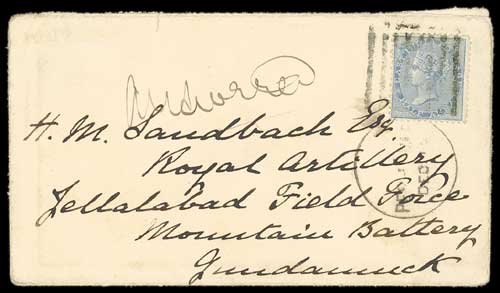 H. M. Sandbach Esq.
Royal Artillery
Jellalabad Field Force
Mountain Battery
Gundamuck